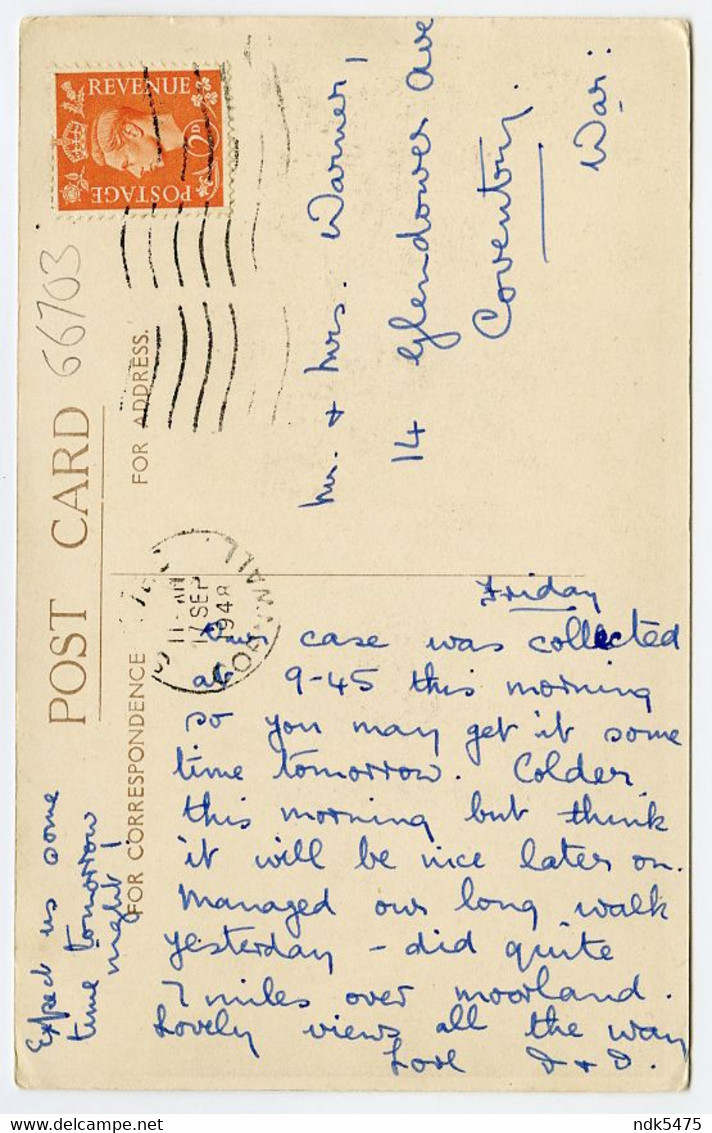 POST CARD
66703
FOR CORRESPONDENCE
FOR ADDRESS.
REVENUE
POSTAGE
2D
11 - AM
17 SEP
1948
CORNWALL
Mr. & Mrs. Warner,
14 Glendower Ave
Coventry.
War:
Friday
Our case was collected
at 9-45 this morning
so you may get it some
time tomorrow. Colder
this morning but think
it will be nice later on.
Managed our long walk
yesterday - did quite
7 miles over moorland.
Lovely views all the way
Love D & D.
Expect us some
time tomorrow
night!
ndk5475